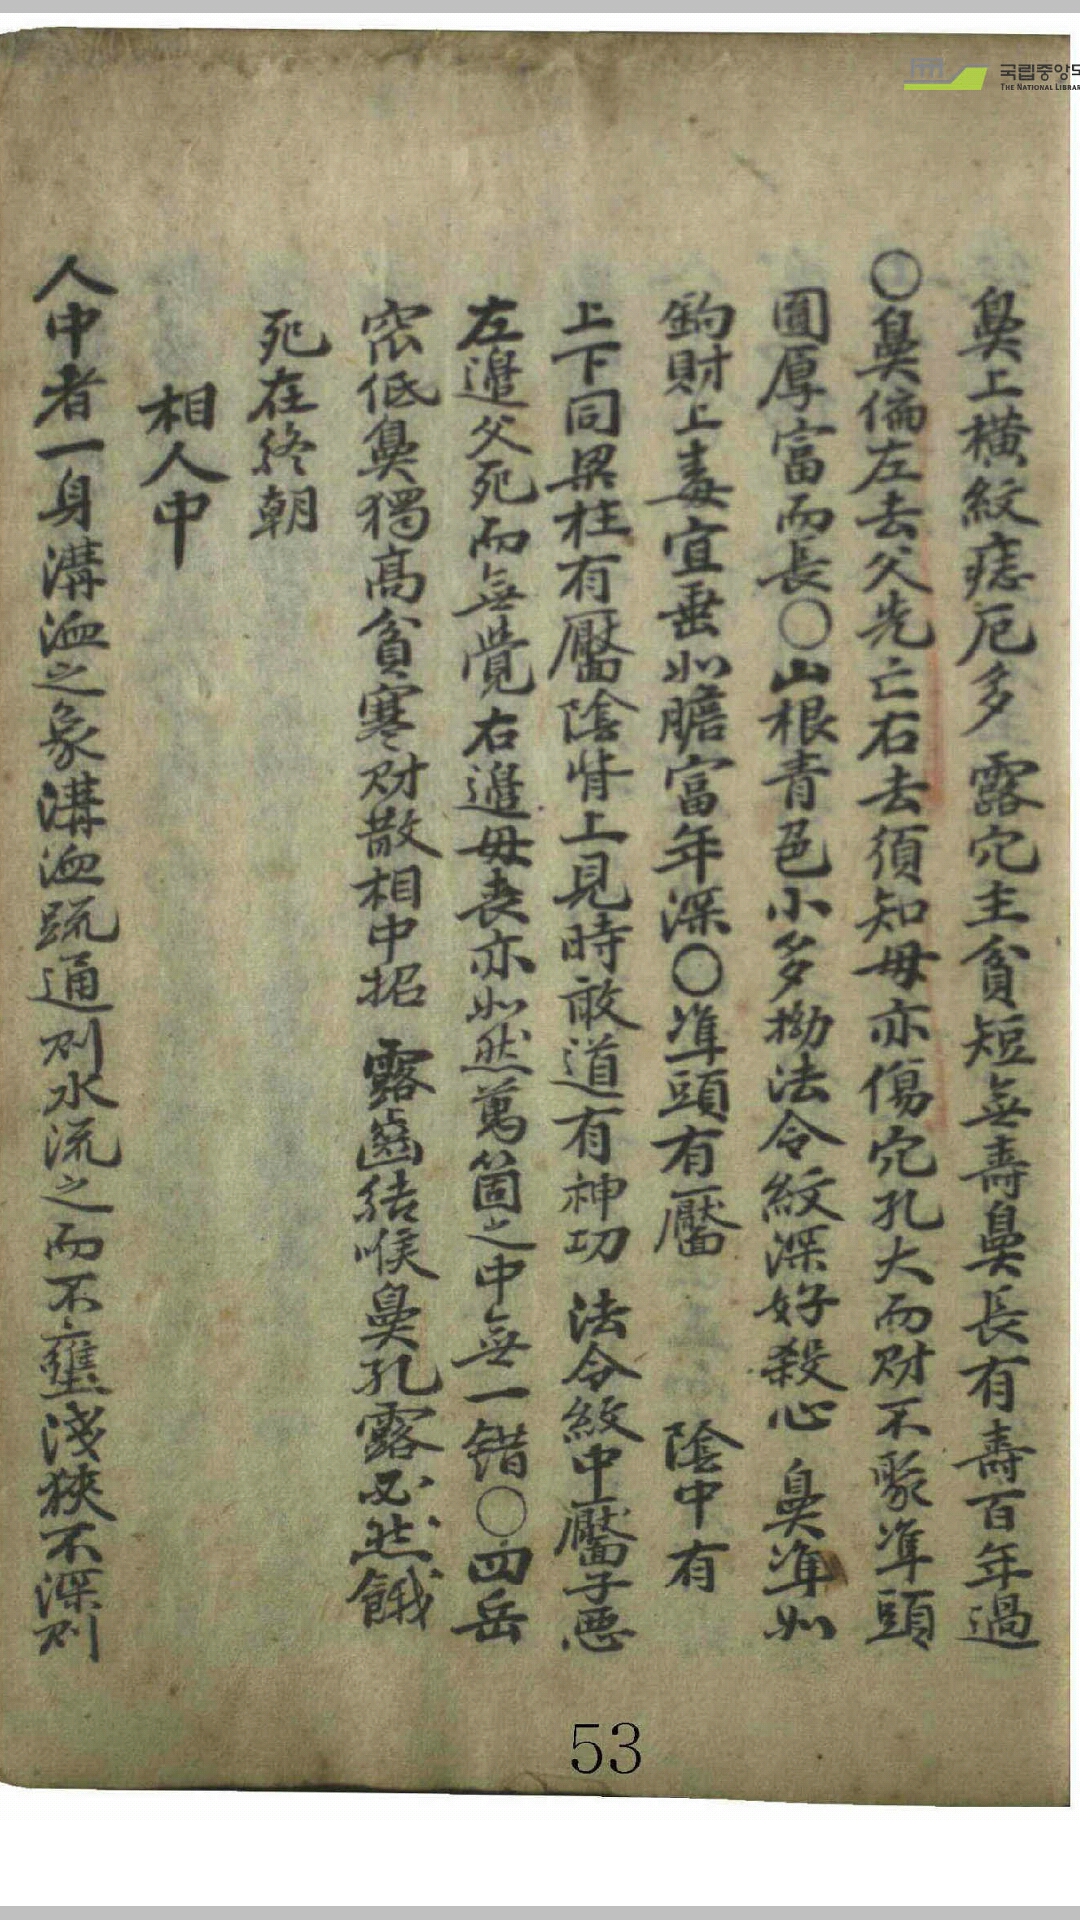 국립중앙도
THE NATIONAL LIBRAR
鼻上橫紋痣厄多 露穴主貧短無壽鼻長有壽百年過
〇鼻偏左去父先亡右去須知母亦傷穴孔大而財不聚準頭
圓厚富而長〇山根青色小多拗法令紋深好殺心 鼻準如
鉤財上毒宜垂如膽富年深〇準頭有靨 陰中有
上下同梁柱有靨陰背上見時敢道有神功 法令紋中靨子惡
左邊父死而無覺右邊母喪亦如然萬箇之中無一錯〇四岳
窊低鼻獨高貧寒財散相中招 露齒結喉鼻孔露必然餓
死在終朝
相人中
人中者一身溝洫之象溝洫疏通則水流之而不壅淺狹不深則
53